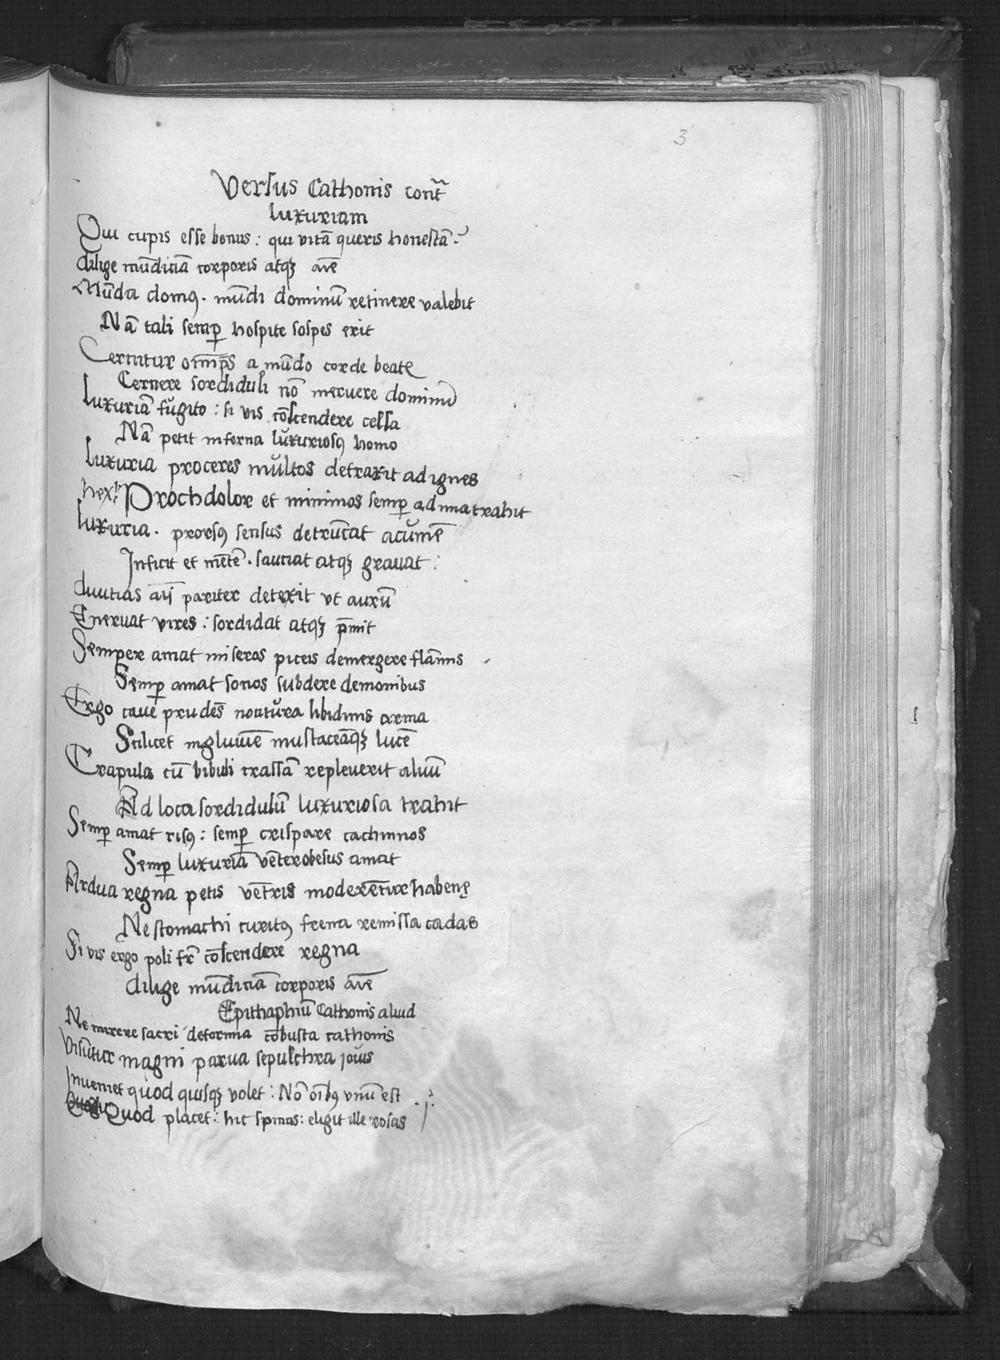 3
Versus Cathonis cont̃
luxuriam
Qui cupis esse bonus : qui vitā queris honestā
dilige mūdiciā corporis atqꝫ aīe
Mūda domꝯ . mūdi dominū retinere valebit
Nā tali semꝑ hospite sospes erit
Cernitur a mūdo corde beatę
Cernere sordiduli nō meruere dominū
Luxuriā fugito : si vis cōscendere celsa
Nā petit inferna luxuriosꝯ homo
Luxuria proceres multos detraxit ad ignes
Prochdolor et minimos semꝑ ad ima trahit
Luxuria . prorsꝯ sensus detrūcat acumē
Inficit et mētē . sauciat atqꝫ grauat :
diuitias pariter detexit vt aurū
Eneruat vires : sordidat atqꝫ p̄mit
Semper amat miseros piceis demergere flāmis
Semꝑ amat socios subdere demonibus
Ergo caue prudēs nocitura libidinis arma
Scilicet ingluuiē mustaceāqꝫ lucē
Crapula cū bibuli crassā repleuerit aluū
Ad loca sordidulū luxuriosa trahit
Semꝑ amat risꝯ : semꝑ crispare cachinnos
Semꝑ luxuriā vēter obesus amat
Ardua regna petis vētris moderētur habenę
Ne stomachi frena remissa cadas
Si vis ergo poli fr̄ cōscendere regna
dilige mūdiciā corporis aīe
Epithaphiū Cathonis aliud
Ne mirere sacri deforma cōbusta cathonis
Visūtur magni parua sepulchra iouis
Inueniet quod quisqꝫ volet : Nō oībꝯ vnū est
Quod placet : hic spinas : eligit ille rosas